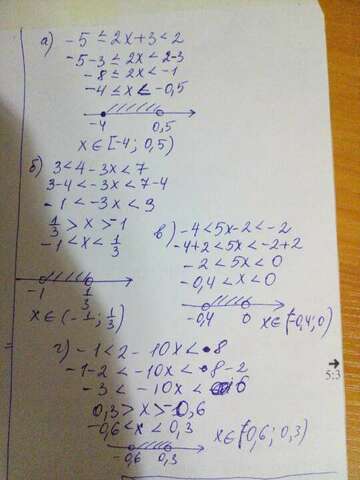 а) -5 ≤ 2x+3 < 2
-5-3 ≤ 2x < 2-3
-8 ≤ 2x < -1
-4 ≤ x < -0,5
-4 0,5
x ∈ [-4; 0,5)
б) 3 < 4 - 3x < 7
3-4 < -3x < 7-4
-1 < -3x < 3
1/3 > x > -1
-1 < x < 1/3
-1 1/3
x ∈ (-1; 1/3)
в) -4 < 5x-2 < -2
-4+2 < 5x < -2+2
-2 < 5x < 0
-0,4 < x < 0
-0,4 0
x ∈ (-0,4; 0)
г) -1 < 2 - 10x < 8
-1-2 < -10x < 8-2
-3 < -10x < 6
0,3 > x > -0,6
-0,6 < x < 0,3
-0,6 0,3
x ∈ (-0,6; 0,3)
5:3